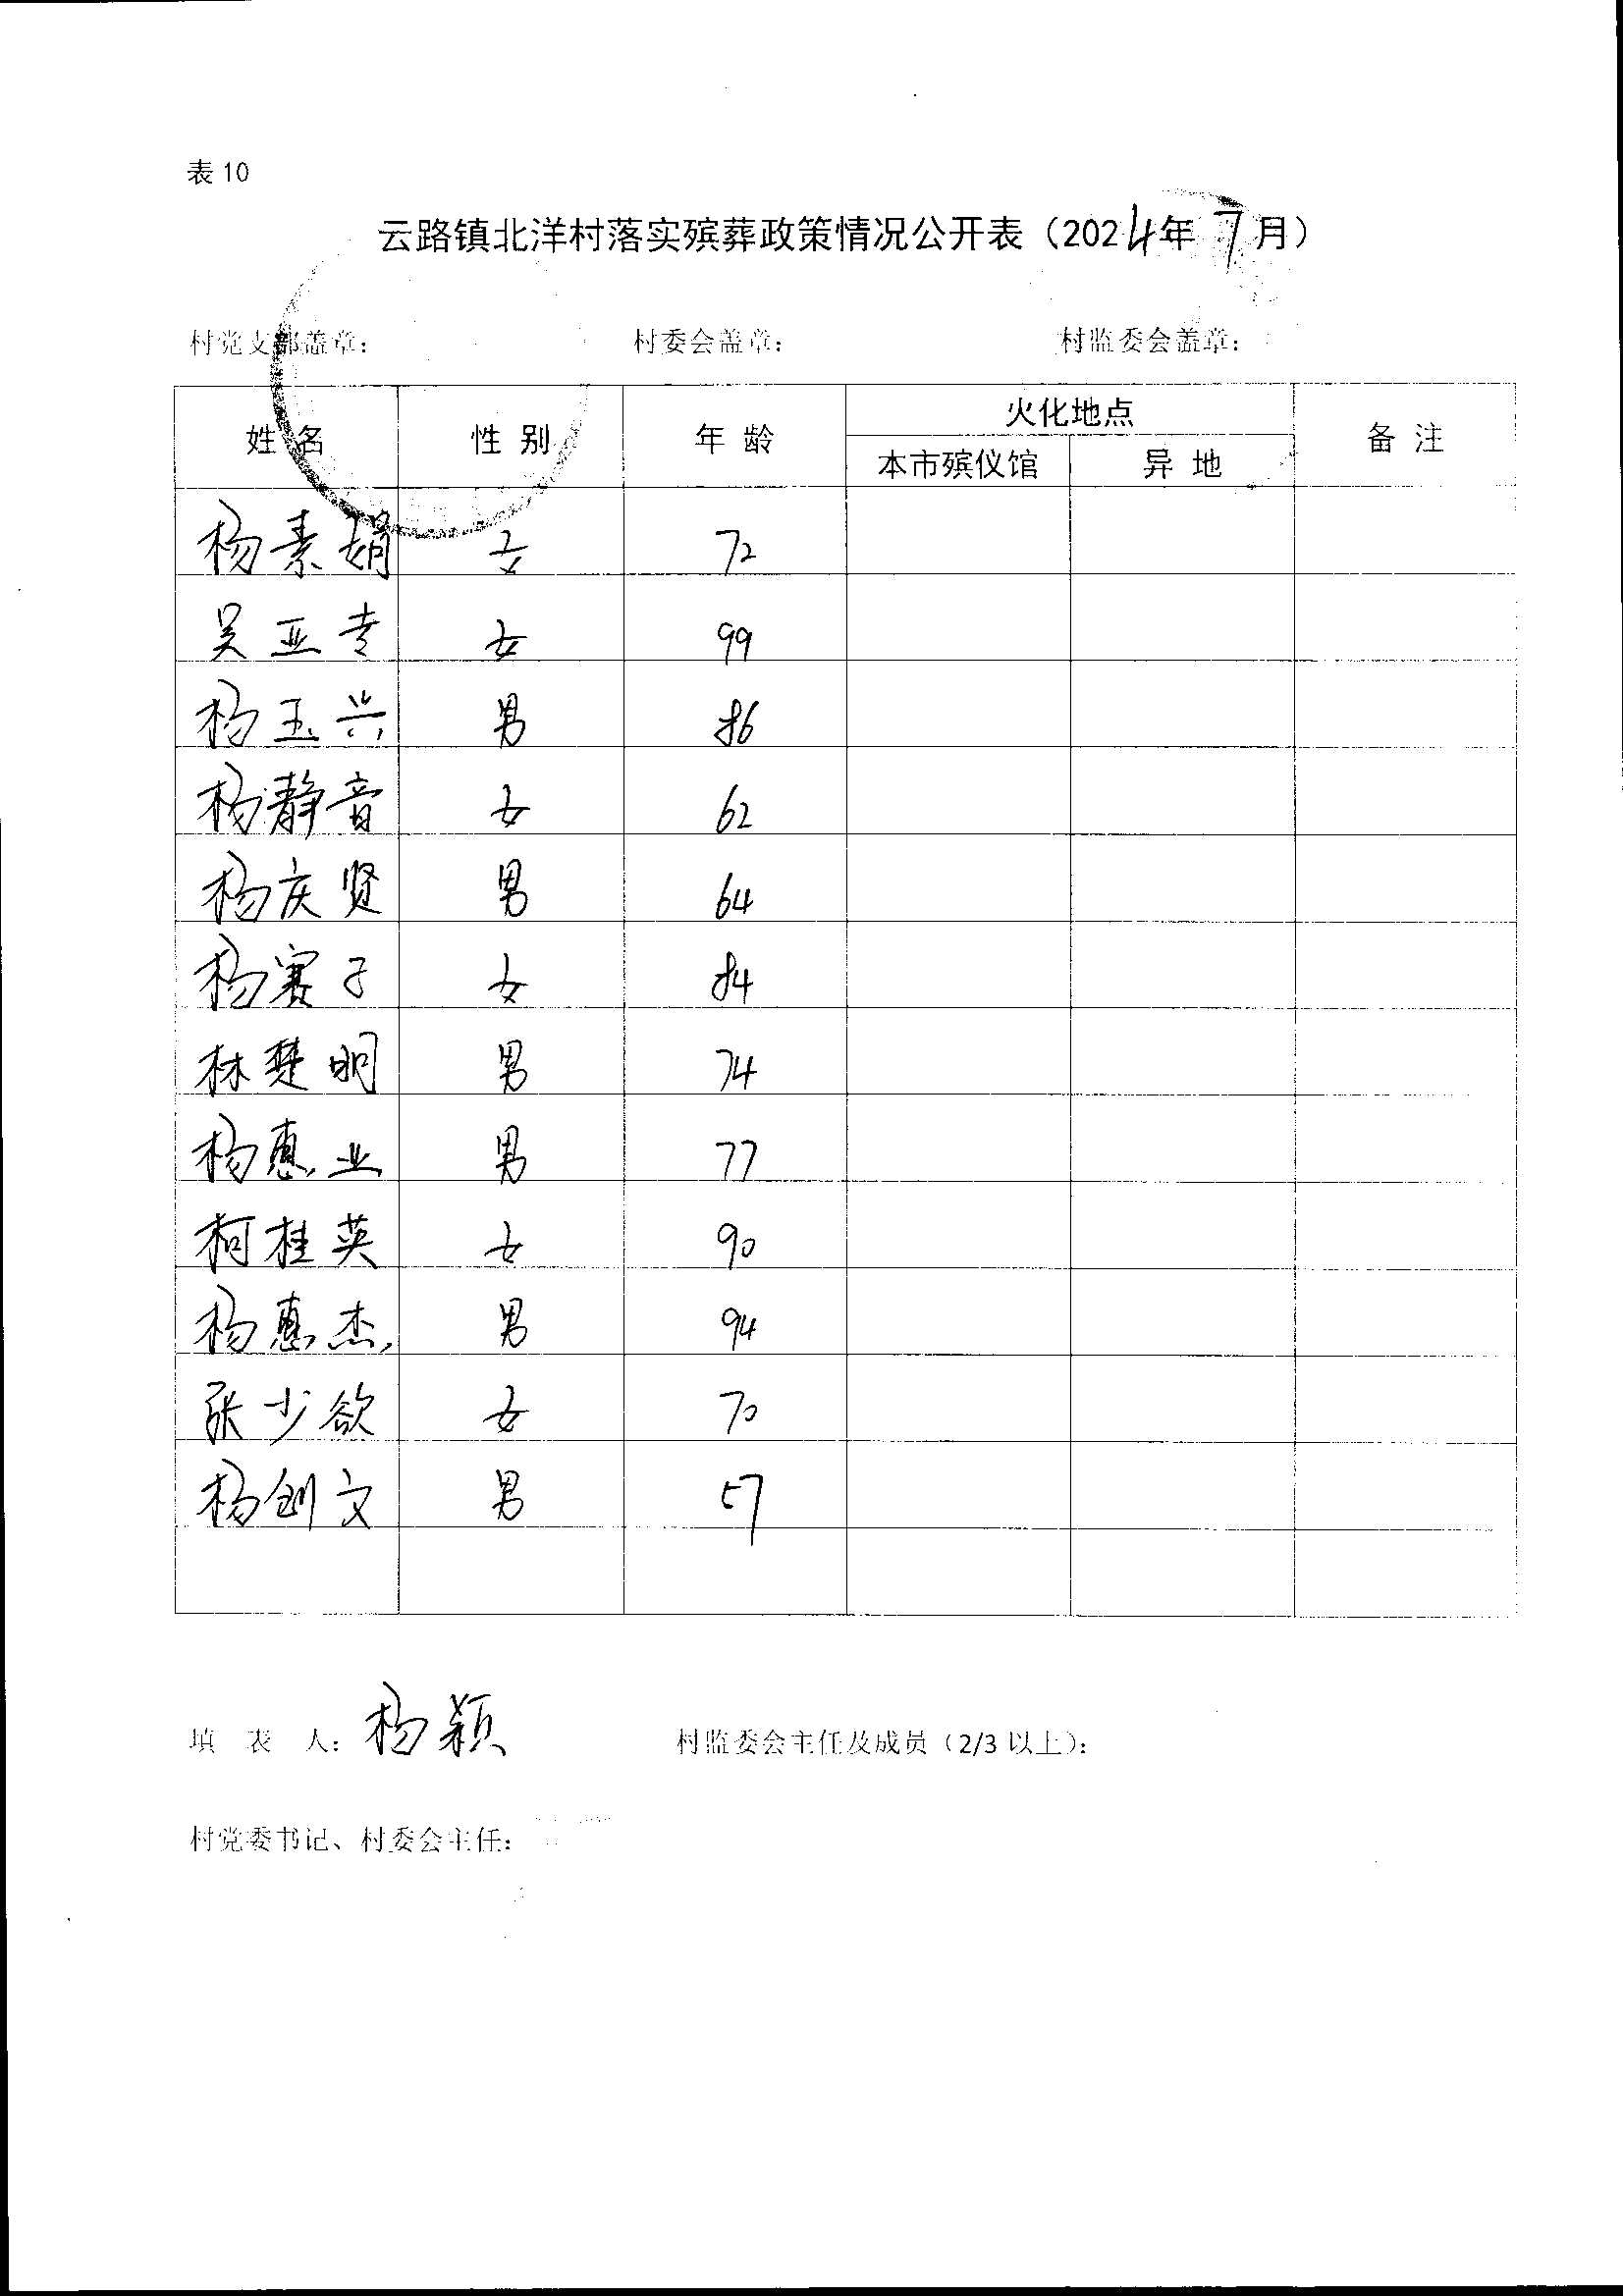 表 10
云路镇北洋村落实殡葬政策情况公开表（2024年7月）
村党支部盖章： 村委会盖章： 村监委会盖章：
姓 名 性 别 年 龄 火化地点 备 注
本市殡仪馆 异 地
杨素娟 女 72
吴亚专 女 99
杨玉兴 男 86
杨静音 女 62
杨庆贤 男 64
杨赛子 女 84
林楚明 男 74
杨惠业 男 77
柯桂英 女 90
杨惠杰 男 94
张少欲 女 70
杨创文 男 57
填 表 人：杨颖 村监委会主任及成员（2/3 以上）：
村党委书记、村委会主任：